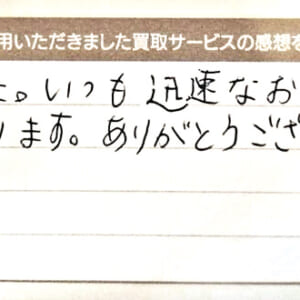 用いただきました買取サービスの感想を
た。いつも迅速なお
ります。ありがとうござ